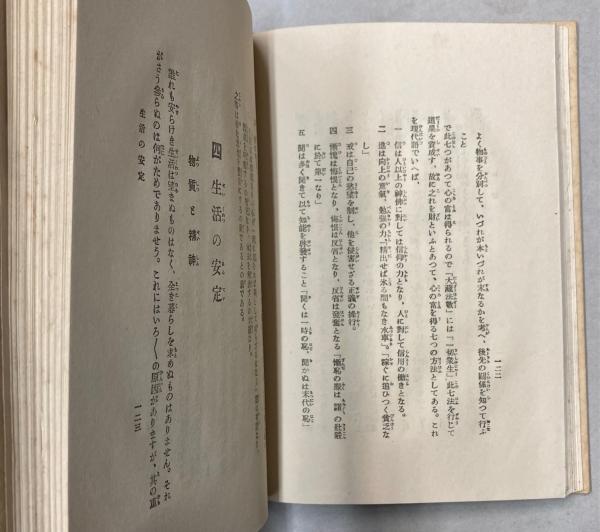 よく物事を分別して、いづれが本いづれが末なるかを考へ、後先の關係を知つて行ふ
こと
で此七つがあつて心の富は得られるので「大藏法數」には「一切衆生」此七法を行じて
道果を資成す、故に之れを財といふとあつて、心の富を得る七つの方法としてある。これ
を現代語でいへば、
一 信は人以上の神佛に對しては信仰の力となり、人に對して信用の働きとなる。
二 進は向上の意氣、勉强の力「精出せば氷る間もなき水車」。「稼ぐに追ひつく貧乏な
し」
三 戒は自己の慾望を制し、他を侵害せざる正義の操行。
四 慚愧は悔恨となり、悔恨は反省となり、反省は發奮となる「慚恥の服は諸の莊嚴
に於て第一なり」
五 聞は多く聞きて以て知能を啓發すること「聞くは一時の恥、聞かぬは末代の恥」
一二二
である。
四 生活の安定
物質と精神
誰れも安らけき生活は望まぬものはなく、全き暮らしを求めぬものはありません。それ
がさう參らぬのは何がためでありませう。これにはいろ〳〵の原因がありますが、其の重
生活の安定
一二三